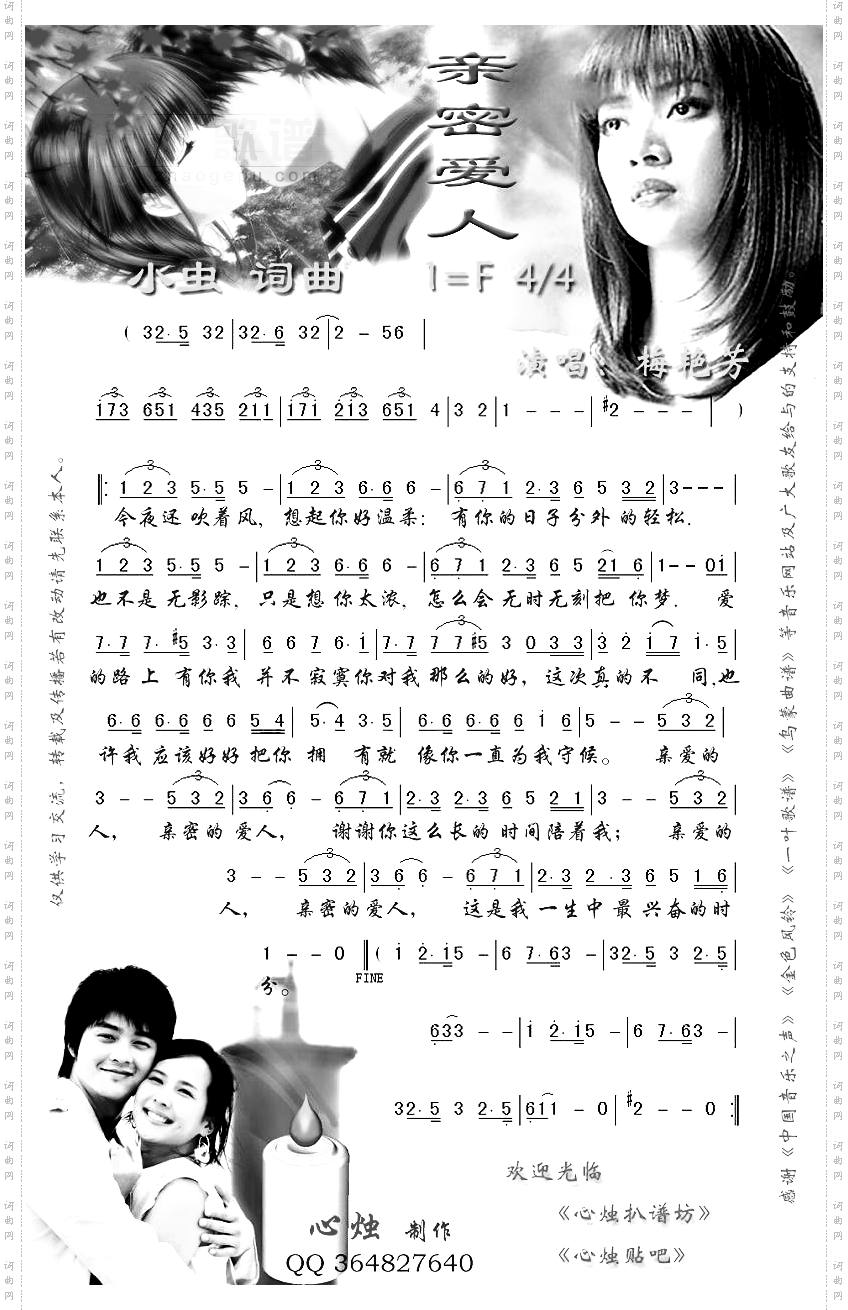 亲密爱人
歌谱
小虫 词曲 1=F 4/4
演唱：梅艳芳
( 32·5 32|32·6 32|2 - 56 |
173 651 435 211|171 213 651 4|3 2|1 - - -|#2 - - - | )
‖: 1 2 3 5·5 5 -|1 2 3 6·6 6 -|6 7 1 2·3 6 5 3 2|3---|
今夜还吹着风, 想起你好温柔: 有你的日子分外的轻松.
1 2 3 5·5 5 -|1 2 3 6·6 6 -|6 7 1 2·3 6 5 21 6|1-- 01|
也不是无影踪. 只是想你太浓, 怎么会无时无刻把你梦. 爱
7·7 7·#5 3·3|6 6 7 6·1|7·7 7 7#5 3 0 33|3 2 1 7 1·5|
的路上有你我并不寂寞你对我那么的好, 这次真的不同,也
6·6 6·6 6 6 5 4| 5·4 3·5| 6·6 6·6 6 1 6|5 - - 5 3 2|
许我应该好好把你拥有就像你一直为我守候。 亲爱的
3 - - 5 3 2|3 6 6 - 6 7 1|2·3 2·3 6 5 2 1|3 - - 5 3 2|
人, 亲密的爱人, 谢谢你这么长的时间陪着我; 亲爱的
3 - - 5 3 2|3 6 6 - 6 7 1|2·3 2·3 6 5 1 6|
人, 亲密的爱人, 这是我一生中最兴奋的时
1 - - 0 ‖( 1 2·15 -|6 7·63 -|32·5 3 2·5|
分。
FINE
633 - -|1 2·15 -|6 7·63 -|
32·5 3 2·5|611 - 0|#2 - - 0 :‖
欢迎光临
《心烛扒谱坊》
《心烛贴吧》
心烛 制作
QQ 364827640
仅供学习交流，转载及传播若有改动请先联系本人。
感谢《中国音乐之声》《金色风铃》《一叶歌谱》《乌蒙曲谱》等音乐网站及广大歌友给与的支持和鼓励。
词曲网